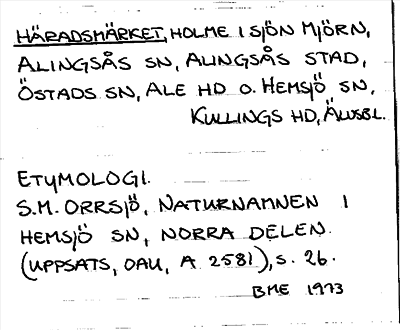 HÄRADSMÄRKET, HOLME I SJÖN MJÖRN,
ALINGSÅS SN, ALINGSÅS STAD,
ÖSTADS SN, ALE HD O. HEMSJÖ SN,
KULLINGS HD, ÄLVSBL.
ETYMOLOGI.
S.M. ORRSJÖ, NATURNAMNEN I
HEMSJÖ SN, NORRA DELEN.
(UPPSATS, OAU, A 2581), S. 26.
BME 1973